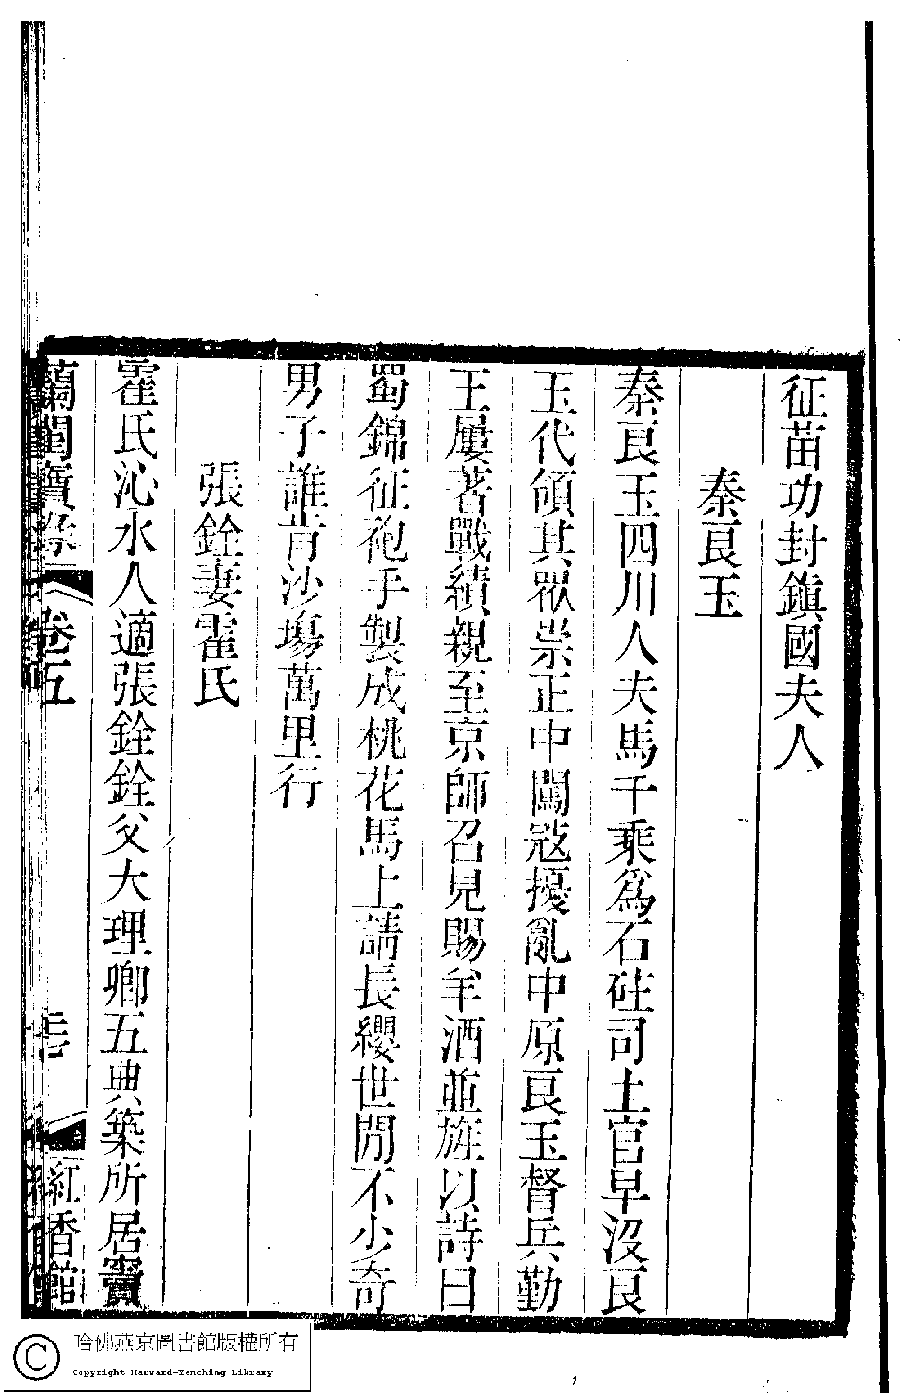 征苗功封鎮國夫人
秦良玉
秦良玉四川人夫馬千乘爲石砫司土官早沒良
玉代領其眾崇正中闖寇擾亂中原良玉督兵勤
王屢著戰績親至京師召見賜羊酒並旌以詩曰
蜀錦征袍手製成桃花馬上請長纓世閒不少奇
男子誰肯沙塲萬里行
張銓妻霍氏
霍氏沁水人適張銓銓父大理卿五典築所居竇
蘭閨寶錄 卷五 紅香館
哈佛燕京圖書館版權所有
Copyright Harvard-Yenching Library